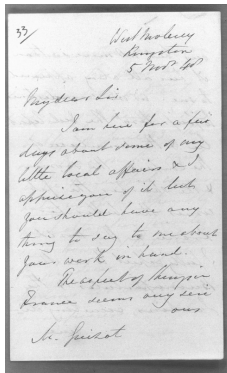 33/
West Molesey
Kingston
5 Nov. 40
My dear Sir.
I am here for a few
days about some of my
little local affairs & I
apprise you of it lest
you should have any
thing to say to me about
your work in hand.
The aspect of things in
France seems very seri
ous
M. Guizot